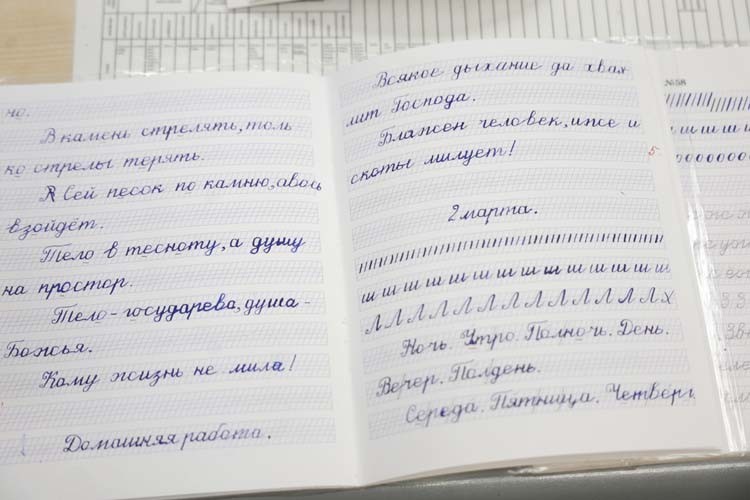 но.
В камень стрелять, толь
ко стрелы терять.
Я Сей песок по камню, авось
взойдёт.
Тело в тесноту, а душу
на простор.
Тело - государева, душа -
Божья.
Кому жизнь не мила!
Домашняя работа.
Всякое дыхание да хвал
лит Господа.
Блажен человек, иже и
скоты милует!
5.
2 марта.
ш ш ш ш ш ш ш ш ш ш ш ш ш ш
Л Л Л Л Л Л Л Л Л Л Л Л Л Х
Ночь. Утро. Полночь. День.
Вечер. Полдень.
Середа. Пятница. Четверг.
№58